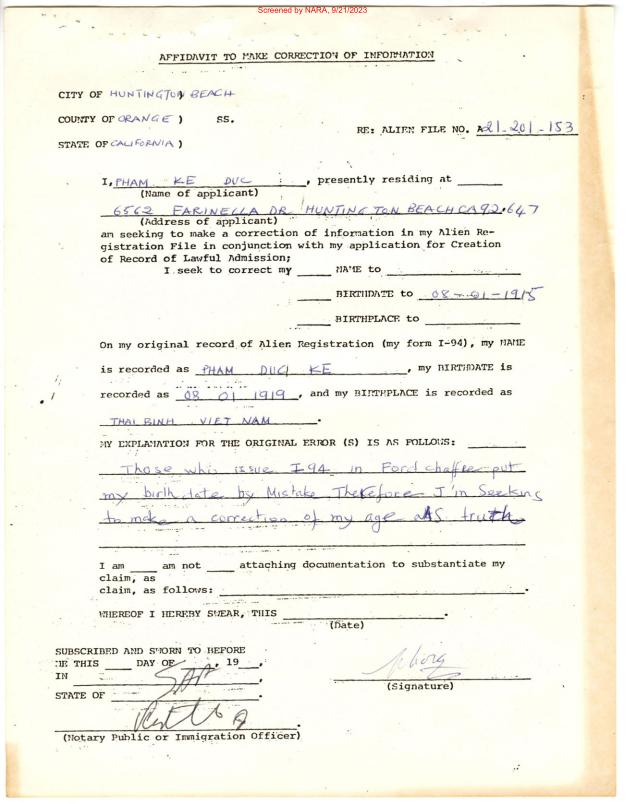 Screened by NARA, 9/21/2023
AFFIDAVIT TO MAKE CORRECTION OF INFORMATION
CITY OF HUNTINGTON BEACH
COUNTY OF ORANGE ) SS.
RE: ALIEN FILE NO. A21-201-153
STATE OF CALIFORNIA )
I, PHAM KE DUC, presently residing at
(Name of applicant)
6562 FARINELLA DR HUNTINGTON BEACH CA 92647
(Address of applicant)
am seeking to make a correction of information in my Alien Re-
gistration File in conjunction with my application for Creation
of Record of Lawful Admission;
I seek to correct my ____ NAME to ____
____ BIRTHDATE to 08-01-1915
____ BIRTHPLACE to ____
On my original record of Alien Registration (my form I-94), my NAME
is recorded as PHAM DUC KE, my BIRTHDATE is
recorded as 08 01 1919, and my BIRTHPLACE is recorded as
THAI BINH VIET NAM.
MY EXPLANATION FOR THE ORIGINAL ERROR (S) IS AS FOLLOWS:
Those who issue I-94 in Ford chaffee put
my birth date by Mistake. Therefore I'm Seeking
to make a correction of my age AS truth
I am ____ am not ____ attaching documentation to substantiate my
claim, as
claim, as follows: ____.
WHEREOF I HEREBY SWEAR, THIS ____.
(Date)
SUBSCRIBED AND SWORN TO BEFORE
ME THIS ____ DAY OF ____, 19 ____,
IN ____
STATE OF ____.
(Signature)
(Notary Public or Immigration Officer)